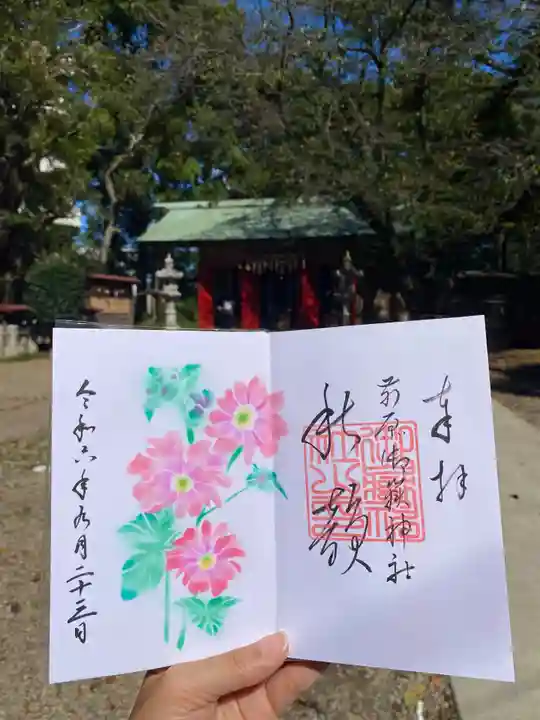 奉拝
前原御嶽神社
秋韻
令和六年九月二十三日